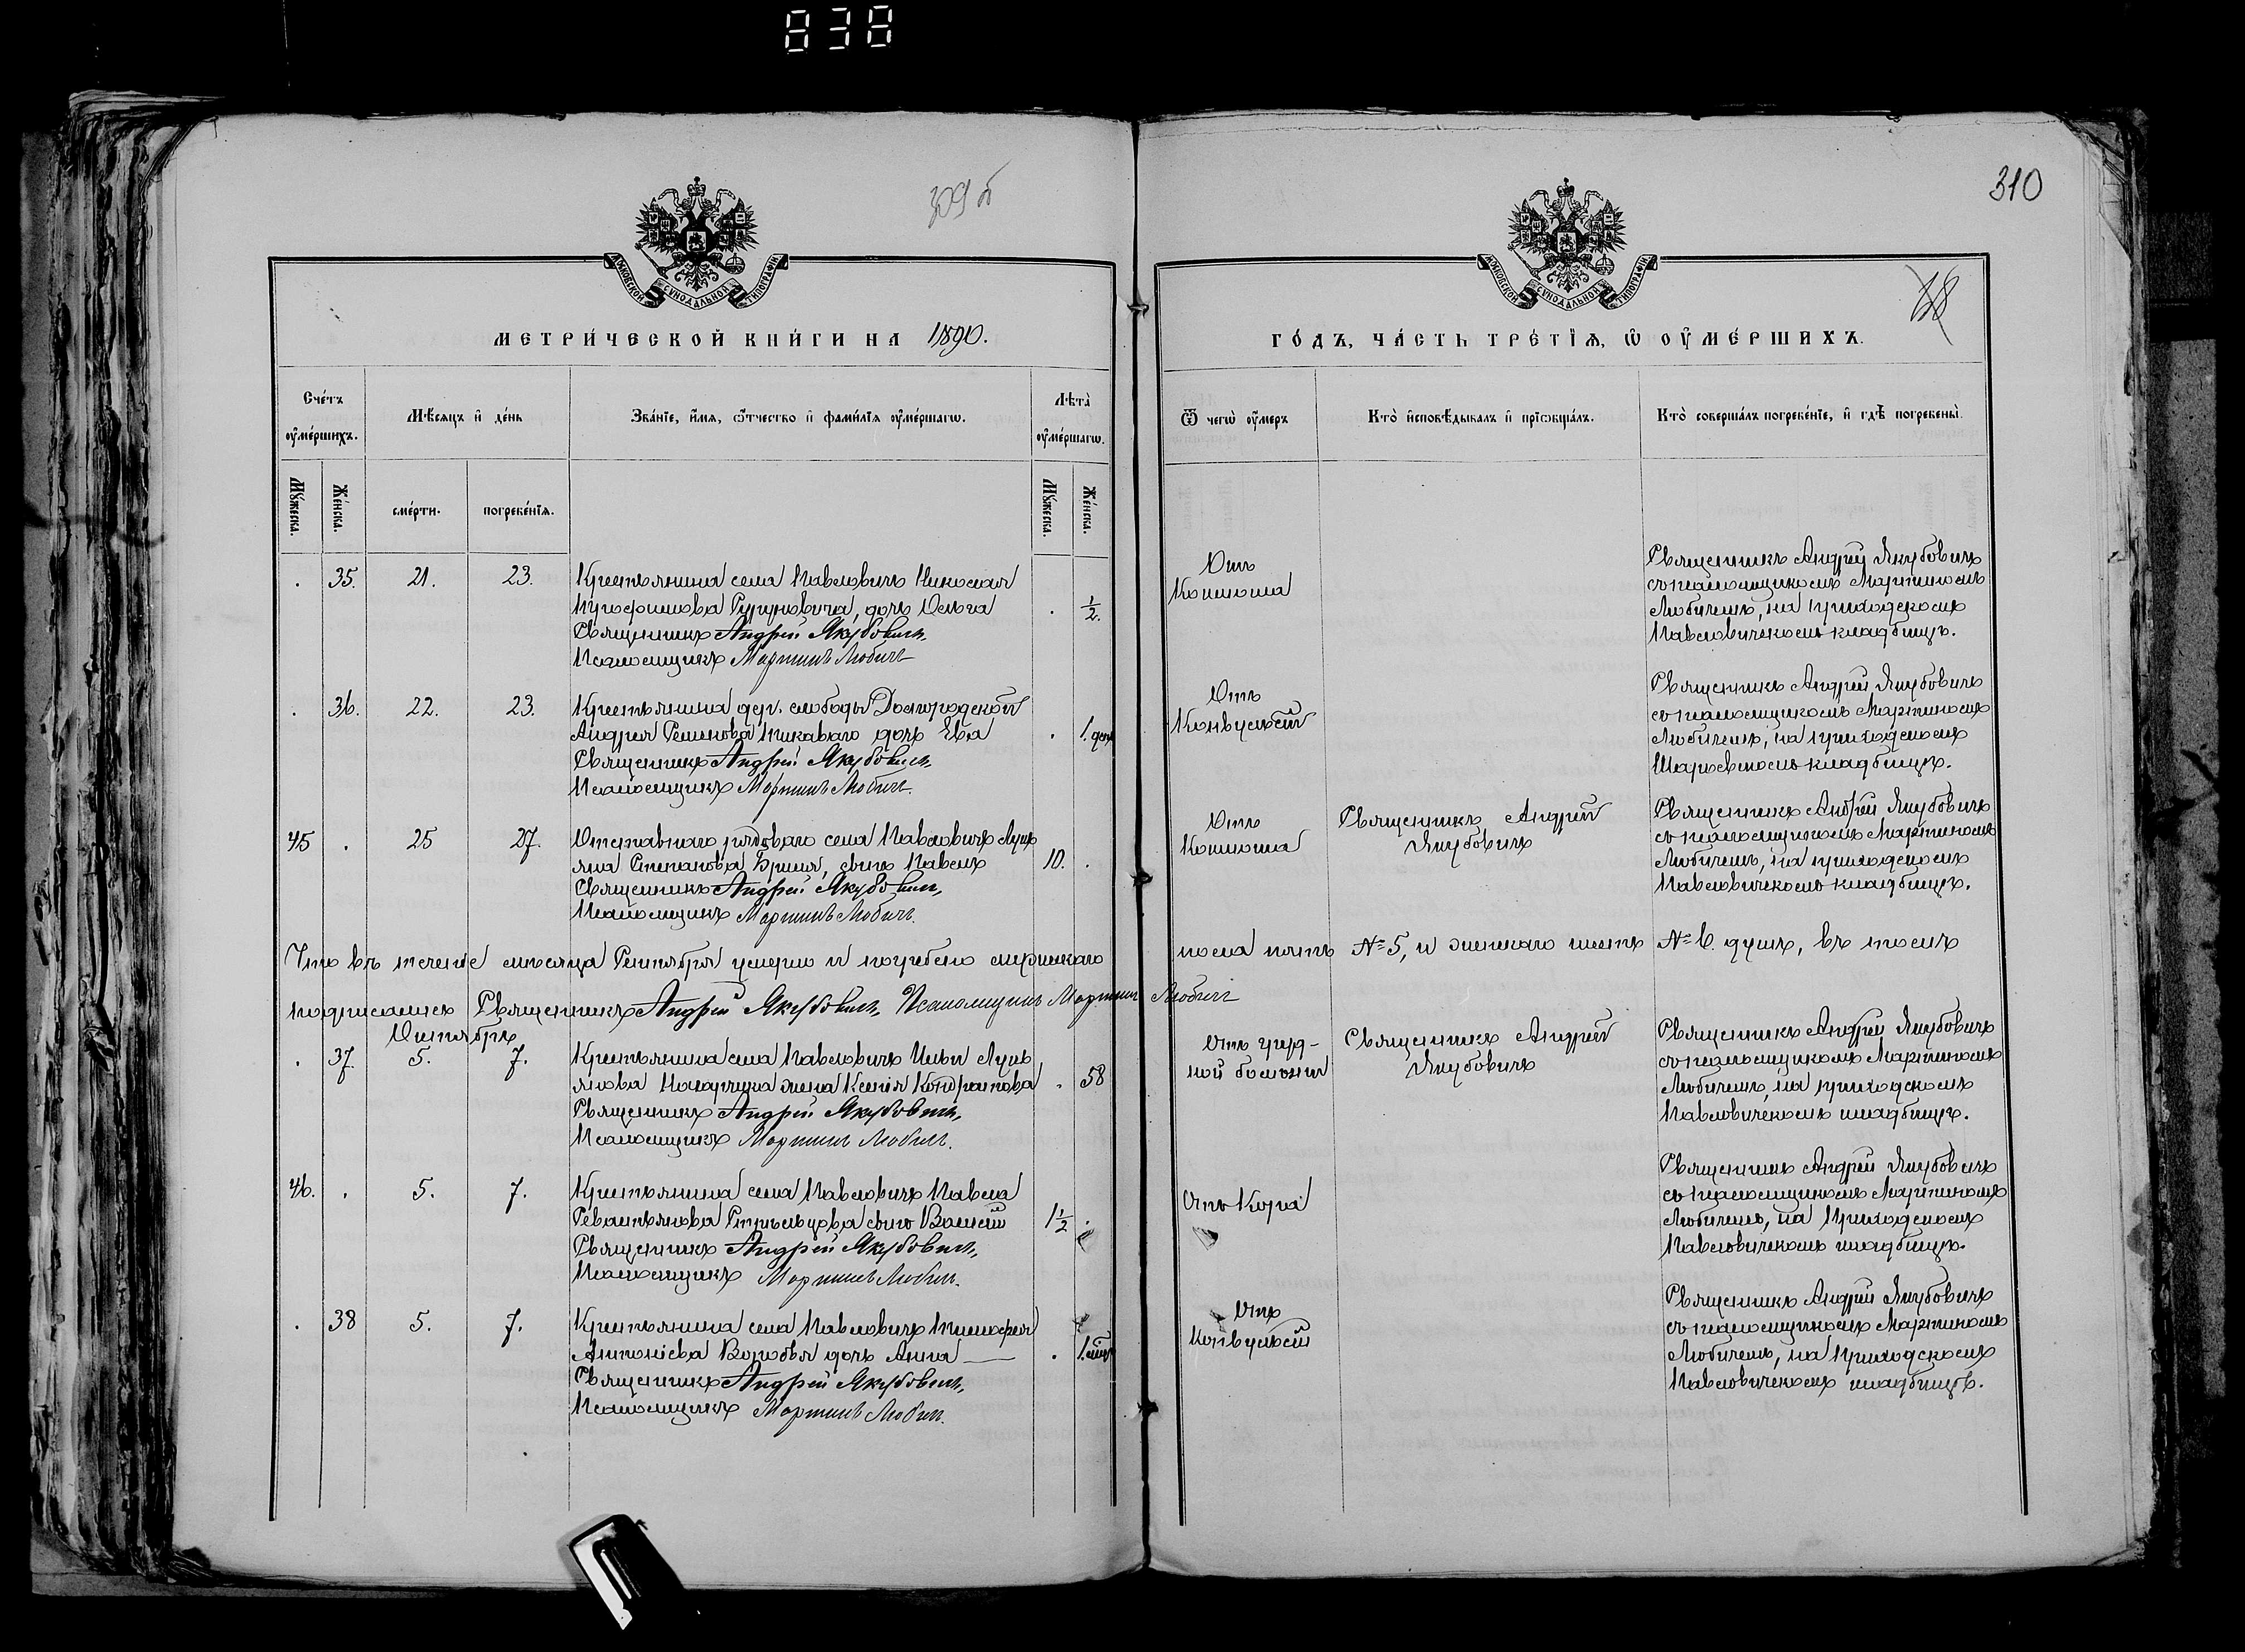 838
309 б
310
МОСКОВСКОЙ СѴНОДАЛЬНОЙ ТИПОГРАФІИ
МОСКОВСКОЙ СѴНОДАЛЬНОЙ ТИПОГРАФІИ
МЕТРИ́ЧЕСКОЙ КНИ́ГИ НА 1890.
ГО́ДЪ, ЧА́СТЬ ТРЕ́ТІѦ, Ѿ ОУ҆МЕ́РШИХЪ.
Сче́тъ оу҆ме́ршихъ.
Мѣ́сѧцъ и҆ де́нь
Зва́нїе, и҆́мѧ, ѻ҆́тчество и҆ фами́лїѧ оу҆ме́ршагѡ.
Лѣ́та̀ оу҆ме́ршагѡ.
Ѿ чегѡ̀ оу҆́меръ
Кто̀ и҆сповѣ́дывалъ и҆ прїѡбща́лъ.
Кто̀ соверша́лъ погребе́нїе, и҆ гдѣ̀ погребены̀.
Мꙋ́жеска.
Же́нска.
сме́рти.
погребе́нїѧ.
Мꙋ́жеска.
Же́нска.
. 35. 21. 23. Крестьянина села Павловичъ Николая
дочь Ольга . ½.
Священникъ Андрей Якубовичъ,
Псаломщикъ Мартинъ Любичъ
Отъ
Коклюша
Священникъ Андрей Якубовичъ
съ псаломщикомъ Мартиномъ
Любичемъ, на приходскомъ
Павловическомъ кладбищѣ.
. 36. 22. 23. Крестьянина дер. слободы
Андрея дочь Ева . 1. дня
Священникъ Андрей Якубовичъ,
Псаломщикъ Мартинъ Любичъ.
Отъ
Конвульсій
Священникъ Андрей Якубовичъ
съ псаломщикомъ Мартиномъ
Любичемъ, на приходскомъ
кладбищѣ.
45 . 25 27. Отставного рядового села Павловичъ Лукъ
яна Степанова сынъ Павелъ 10. .
Священникъ Андрей Якубовичъ,
Псаломщикъ Мартинъ Любичъ.
Отъ
Коклюша
Священникъ Андрей
Якубовичъ
Священникъ Андрей Якубовичъ
съ псаломщикомъ Мартиномъ
Любичемъ, на приходскомъ
Павловическомъ кладбищѣ.
Что въ теченіе мѣсяца Сентября умерло и погребено мужескаго
пола пять № 5, и женскаго шесть № 6. душъ, въ томъ
подписались Священникъ Андрей Якубовичъ, Псаломщикъ Мартинъ Любичъ
Октябрь
. 37. 5. 7. Крестьянина села Павловичъ Ильи Лукь
янова жена Ксенія Кондратова . 58
Священникъ Андрей Якубовичъ,
Псаломщикъ Мартинъ Любичъ.
Отъ груд-
ной болѣзни
Священникъ Андрей
Якубовичъ
Священникъ Андрей Якубовичъ
съ псаломщикомъ Мартиномъ
Любичемъ, на приходскомъ
Павловическомъ кладбищѣ.
46. . 5. 7. Крестьянина села Павловичъ Павла
Севастьянова сынъ 1½ .
Священникъ Андрей Якубовичъ,
Псаломщикъ Мартинъ Любичъ.
Отъ Кора
Священникъ Андрей Якубовичъ
съ псаломщикомъ Мартиномъ
Любичемъ, на приходскомъ
Павловическомъ кладбищѣ.
. 38 5. 7. Крестьянина села Павловичъ Тимофея
Антоніева Воробья дочь Анна .
Священникъ Андрей Якубовичъ,
Псаломщикъ Мартинъ Любичъ.
Отъ
Конвульсій
Священникъ Андрей Якубовичъ
съ псаломщикомъ Мартиномъ
Любичемъ, на приходскомъ
Павловическомъ кладбищѣ.